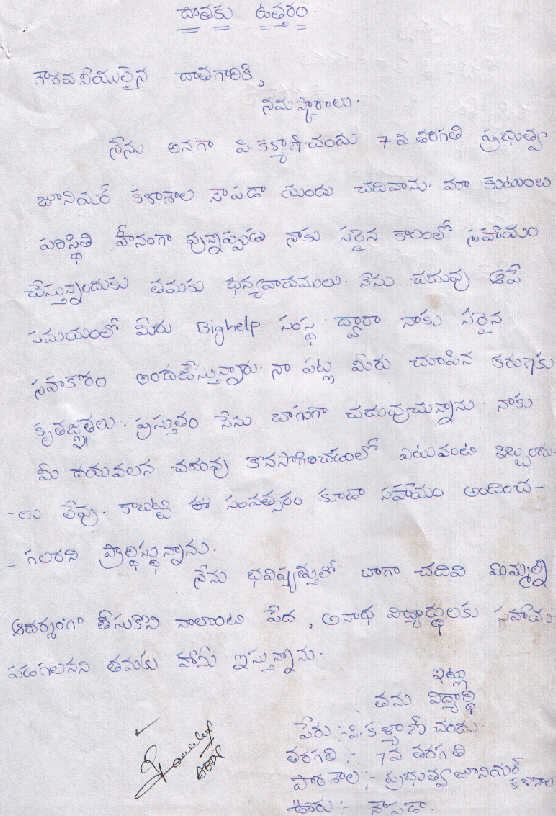 దాతకు ఉత్తరం
గౌరవనీయులైన దాతగారికి,
నమస్కారాలు.
నేను అనగా వి కళ్యాణ్ చందు 7 వ తరగతి ప్రభుత్వ
జూనియర్ కళాశాల సాపడా యందు చదివాను. మా కుటుంబ
పరిస్థితి హీనంగా వున్నప్పుడు నాకు సరైన కాలంలో సహాయం
చేస్తున్నందుకు తమకు ధన్యవాదములు. నేను చదువు ఆపే
సమయంలో మీరు Bighelp సంస్థ ద్వారా నాకు సరైన
సహకారం అందజేస్తున్నారు. నా పట్ల మీరు చూపిన కరుణకు
కృతజ్ఞతలు. ప్రస్తుతం నేను బాగుగా చదువుచున్నాను. నాకు
మీ దయవలన చదువు కొనసాగించడంలో ఎటువంటి ఇబ్బందు-
-లు లేవు. కాబట్టి ఈ సంవత్సరం కూడా సహాయం అందించ-
-గలరని ప్రార్థిస్తున్నాను.
నేను భవిష్యత్తులో బాగా చదివి మిమ్మల్ని
ఆదర్శంగా తీసుకొని నాలాంటి పేద, అనాథ విద్యార్థులకు సహాయ
పడగలనని తమకు హామీ ఇస్తున్నాను.
ఇట్లు
తమ విద్యార్థి
పేరు :- వి. కళ్యాణ్ చందు.
తరగతి :- 7వ తరగతి
పాఠశాల :- ప్రభుత్వ జూనియర్
కళాశాల
ఊరు :- సాపడా.